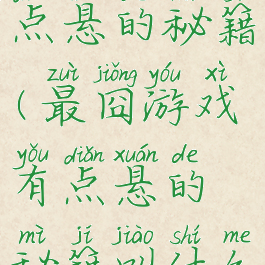 点悬的秘籍
zuì jiǒng yóu xì
(最囧游戏
yǒu diǎn xuán de
有点悬的
mì jí jiào shí me
秘籍叫什么